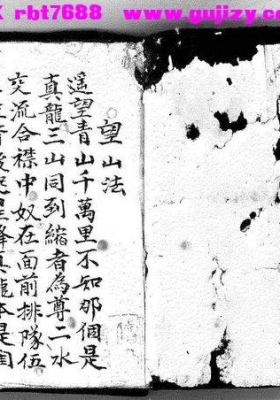 rbt7688 www.gujizy.c
望山法
遥望青山千萬里不知那個是
真龍三山同到縮者為尊二水
交流合襟中奴在面前排隊伍